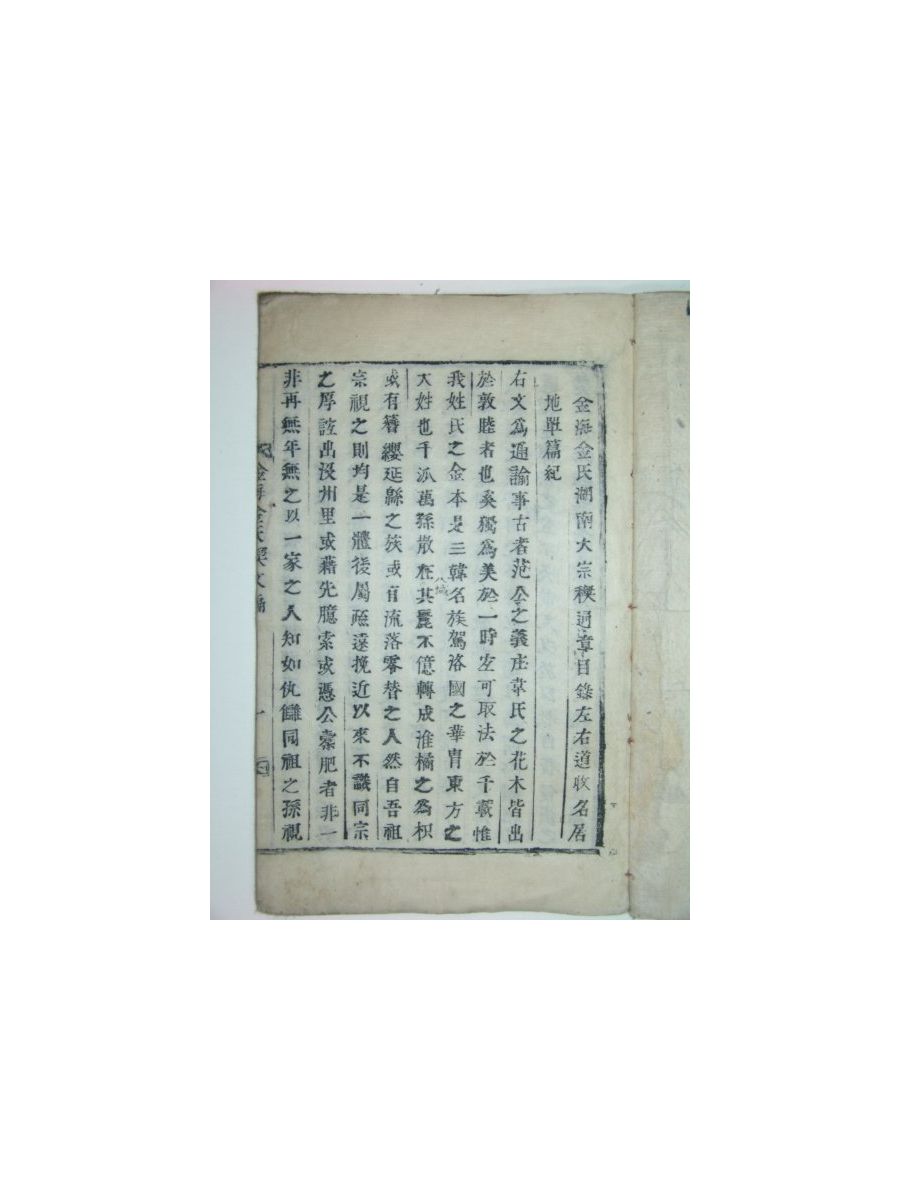 金海金氏湖南大宗稧通章目錄左右道收名居
地單篇紀
右文爲通諭事古者范公之義庄韋氏之花木皆出
於敦睦者也奚獨爲美於一時宏可取法於千載惟
我姓氏之金本是三韓名族駕洛國之華胄東方之
大姓也千派萬孫散在八域其麗不億轉成淮橘之為枳
或有簪纓延緜之族或有流落零替之人然自吾祖
宗視之則均是一體後屬疏遠挽近以來不議同宗
之厚誼出沒州里或藉先臆索或憑公橐肥者非一
非再無年無之以一家之人知如仇讎同祖之孫視
金海金氏稧文編
一